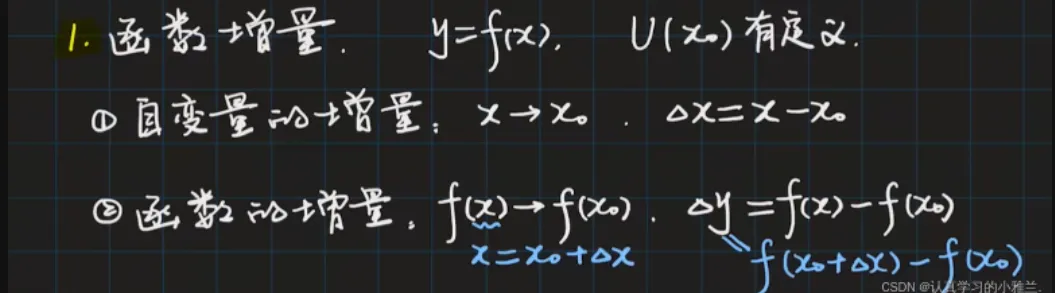 1. 函数增量. y=f(x). U(x₀)有定义.
① 自变量的增量: x→x₀. Δx=x-x₀
② 函数的增量: f(x)→f(x₀). Δy=f(x)-f(x₀)
x=x₀+Δx f(x₀+Δx)-f(x₀)
CSDN @认真学习的小雅兰.